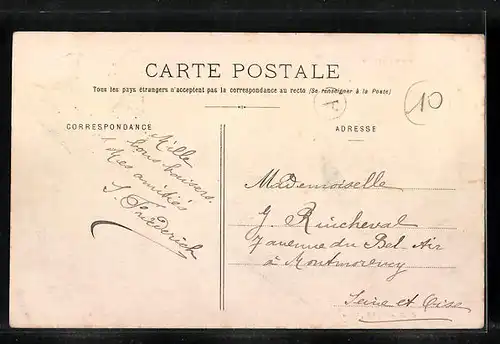 CARTE POSTALE
Tous les pays étrangers n'acceptent pas la correspondance au recto (Se renseigner à la Poste)
10
CORRESPONDANCE
ADRESSE
Mille
bons baisers.
Mes amitiés
Friederich
Mademoiselle
G. Rincheval
7 avenue du Bel-Air
à Montmorency
Seine et Oise